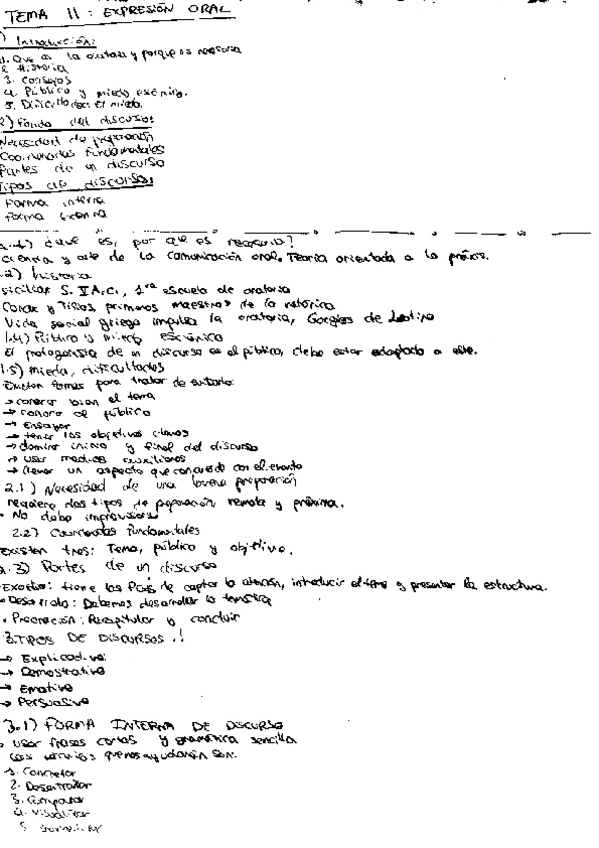 TEMA 11: EXPRESIÓN ORAL
1) Introducción:
1. Que es la oratoria y porque es necesaria
2. Historia
3. Consejos
4. Público y miedo escénico.
5. Dificultades. El miedo.
2) Fondo del discurso:
Necesidad de preparación
Coordenadas fundamentales
Partes de un discurso
Tipos de discursos:
Forma interna
Forma externa
1.1) ¿Qué es, por qué es necesario?
Ciencia y arte de la comunicación oral. Teoría orientada a la práxis.
2) historia
Sicilia S. V A.C., 1ra escuela de oratoria
Corax y Tisias, primeros maestros de la retórica
Vida social griega impulsa la oratoria, Gorgias de Leotino
1.4) Público y miedo escénico
El protagonista de un discurso es el público, debe estar adaptado a este.
1.5) miedo, dificultades
Existen formas para tratar de
→ conocer bien el tema
→ conocer el público
→ Ensayar
→ tener los objetivos claros
→ dominar inicio y final del discurso
→ usar medios auxiliares
→ llevar un aspecto que concuerde con el evento
2.1) Necesidad de una buena preparación
requiere dos tipos de preparación remota y próxima.
• No debo improvisar
2.2) Coordenadas fundamentales
Existen tres: Tema, público y objetivo.
2.3) Partes de un discurso
Exordio: tiene las de captar la atención, introducir el tema y presentar la estructura.
• Desarrollo: Debemos desarrollar la temática
• Peroración: Recapitular y concluir
3. TIPOS DE DISCURSOS:
→ Explicativo
→ Demostrativo
→ Emotivo
→ Persuasivo
3.1) FORMA INTERNA DE DISCURSO
usar frases cortas y gramática sencilla
Los que nos ayudarán son:
1. Concretar
2. Desentrañar
3. Comparar
4. Visualizar
5.